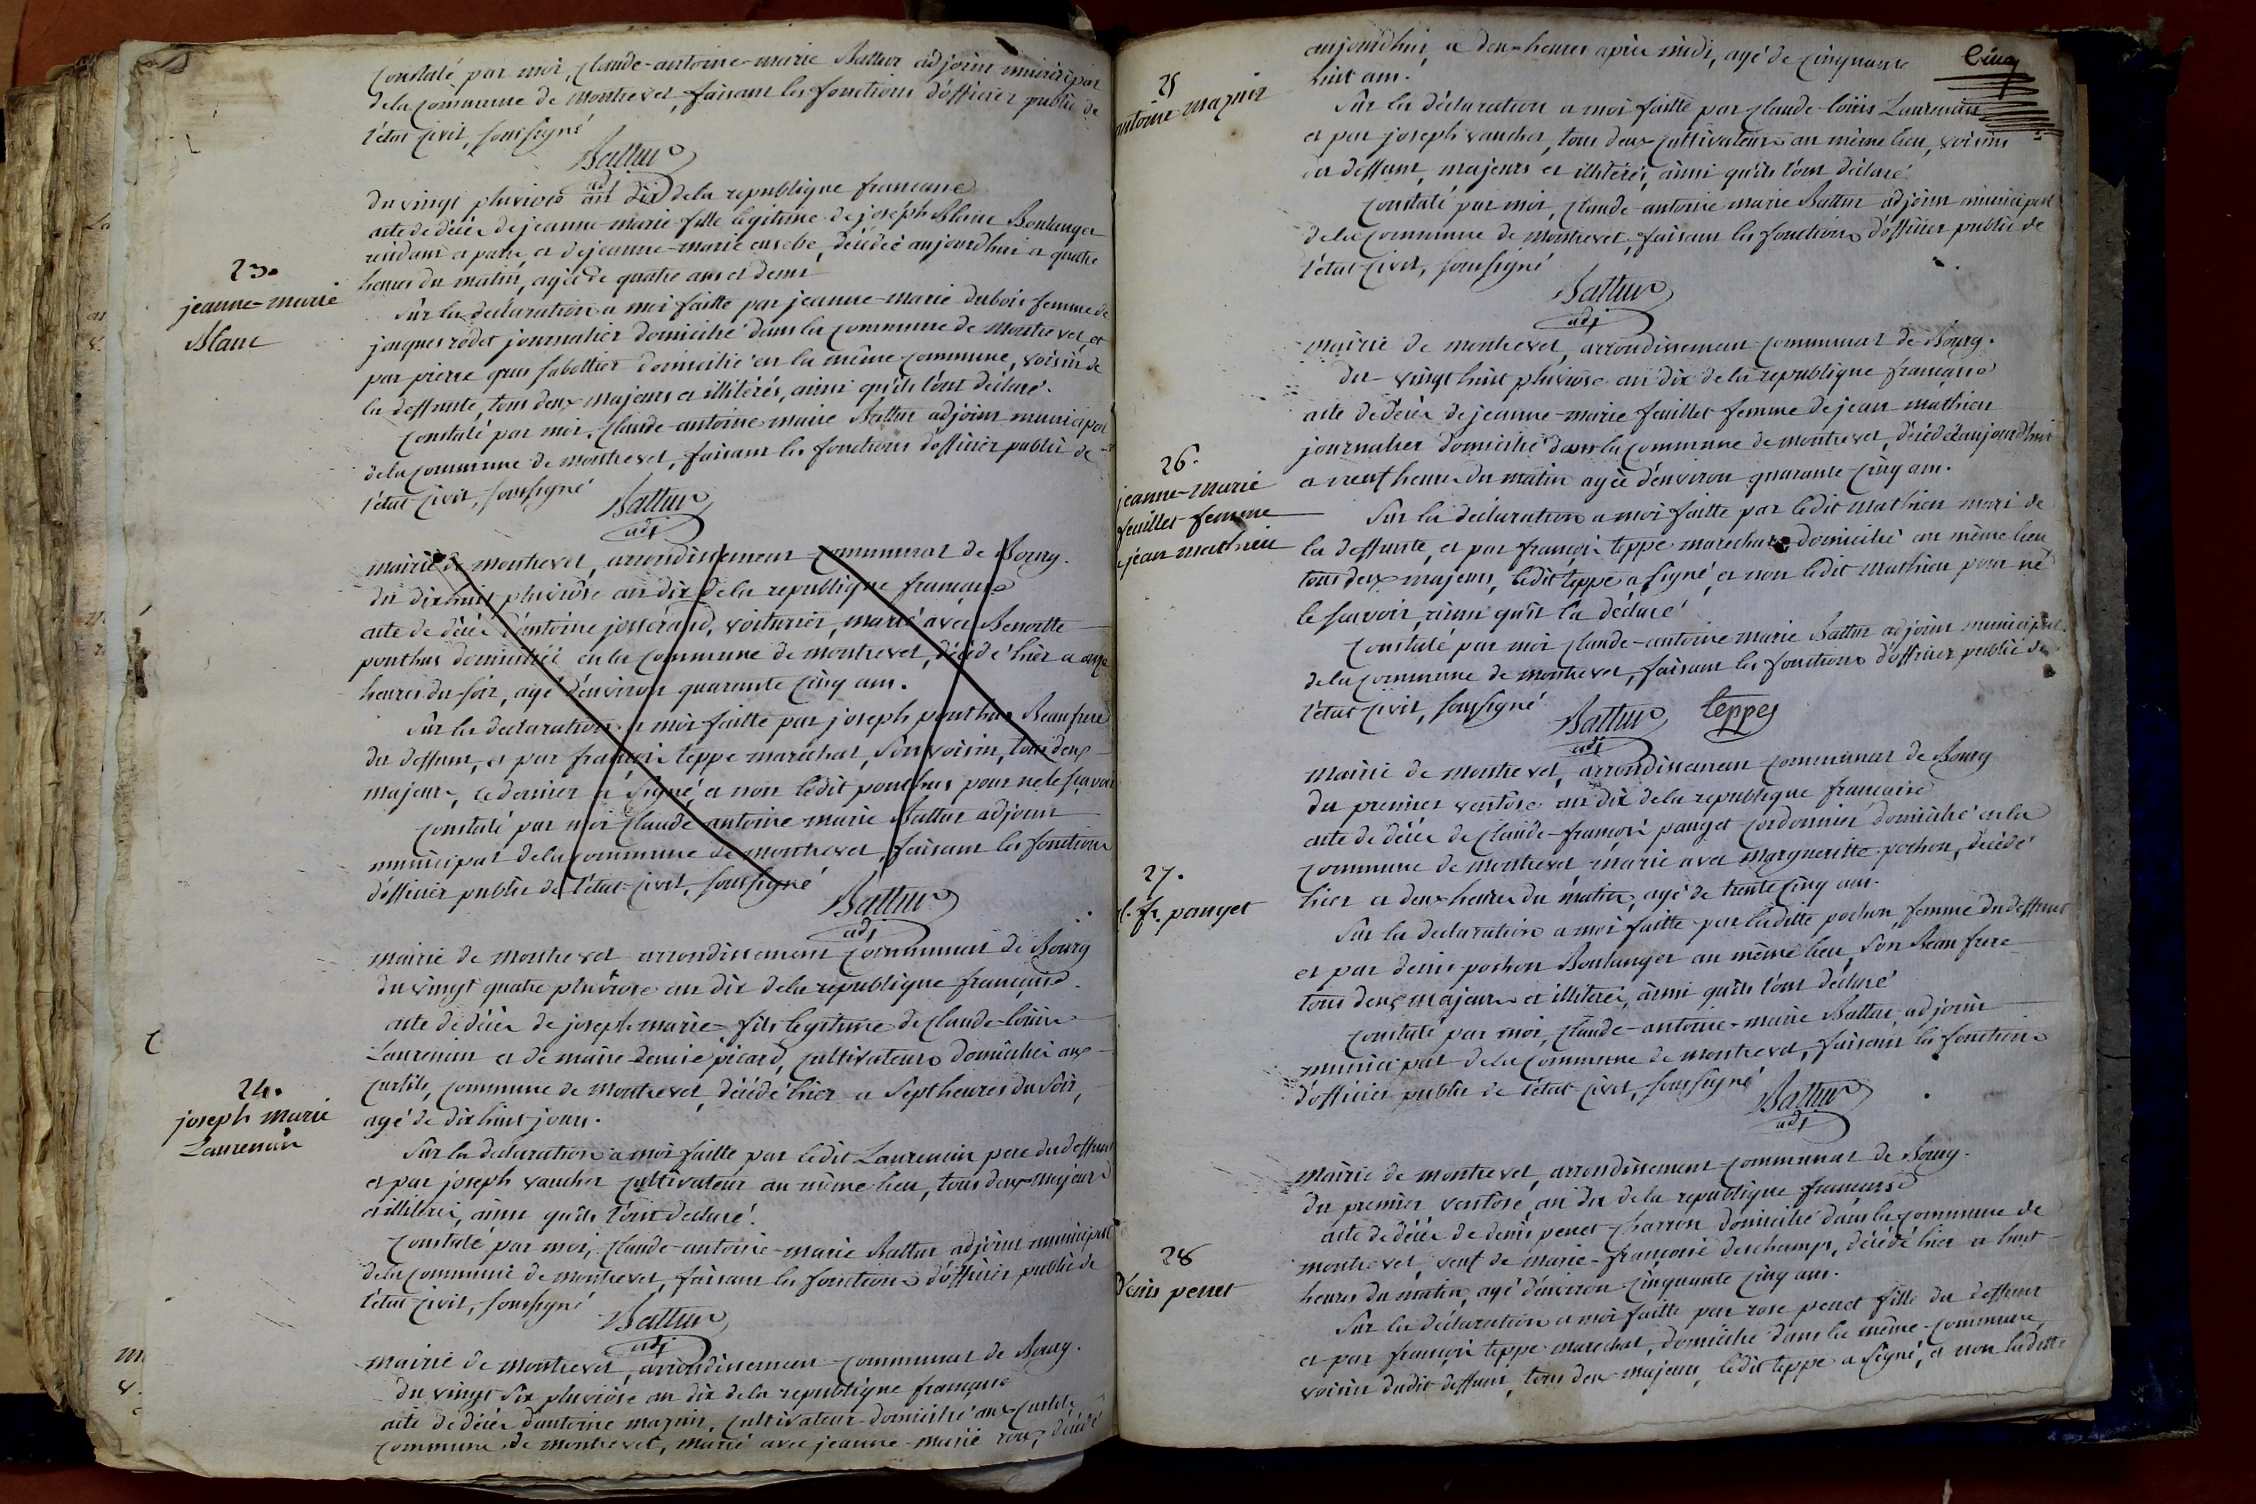 Constaté par moi, Claude-antoine-marie Battur adjoint municipal
de la commune de montrevel, faisant les fonctions d'officier public de
l'état civil, soussigné
Battur
adj
du vingt pluviose an dix de la republique francaise
acte de décès de jeanne-marie fille légitime de joseph Blanc Boulanger
et de jeanne-marie eusebe, décédée aujourdhui a quatre
heures du matin, agée de quatre ans et demi
23.
jeanne-marie
Blanc
Sur la déclaration a moi faitte par jeanne-marie dubois femme de
jacques rodet journalier domicilié dans la commune de montrevel, et
par pierre gras sabottier domicilié en la même commune, voisin de
la deffunte, tous deux majeurs et illitérés, ainsi qu'ils l'ont déclaré.
Constaté par moi, Claude-antoine marie Battur adjoint municipal
de la commune de montrevel, faisant les fonctions d'officier public de
l'état civil, soussigné
Battur
adj
mairie de montrevel, arrondissement communal de Bourg.
du dixhuit pluviôse an dix de la republique française
acte de décès d'antoine josserand, voiturier, marié avec Benoitte
ponthus domiciliés en la commune de montrevel, décédé hier a onze
heures du soir, agé d'environ quarante cinq ans.
Sur la declaration a moi faitte par joseph ponthus Beaufrere
du deffunt, et par françois teppe maréchal, son voisin, tous deux
majeurs, ce dernier a signé, et non ledit ponthus pour ne le scavoir
Constaté par moi Claude antoine marie Battur adjoint
municipal de la commune de montrevel, faisant les fonctions
d'officier public de l'état-civil, soussigné
Battur
adj
mairie de montrevel arrondissement communal de Bourg
du vingt quatre pluviose an dix de la republique française.
acte de décès de joseph marie fils legitime de Claude-louis
Laurencin et de marie denise picard, cultivateurs domiciliés aux
curtils, commune de montrevel, décédé hier a sept heures du soir,
agé de dix huit jours.
24.
joseph marie
Laurencin
Sur la declaration a moi faitte par ledit Laurencin pere du deffunt
et par joseph vaucher cultivateur au même lieu, tous deux majeurs
et illitérés, ainsi qu'ils l'ont déclaré.
Constaté par moi, Claude-antoine-marie Battur adjoint municipal
de la commune de montrevel, faisant les fonctions d'officier public de
l'état civil, soussigné
Battur
adj
mairie de montrevel, arrondissement communal de Bourg.
du vingt six pluviôse an dix de la republique française
acte de décès d'antoine maznir, cultivateur domicilié aux curtils
commune de montrevel, marié avec jeanne-marie roux, décédé
Cinq
aujourdhui, a deux heures après midi, agé de cinquante
huit ans.
25
antoine maznir
Sur la déclaration a moi faitte par Claude-louis Laurencin
et par joseph vaucher, tous deux cultivateurs au même lieu, voisins
du deffunt, majeurs et illitérés, ainsi qu'ils l'ont déclaré
Constaté par moi, Claude-antoine marie Battur adjoint municipal
de la commune de montrevel, faisant les fonctions d'officier public de
l'état civil, soussigné
Battur
adj
mairie de montrevel, arrondissement communal de Bourg.
du vingt huit pluviose an dix de la republique française
acte de décès de jeanne-marie feuillet femme de jean mathieu
journalier domicilié dans la commune de montrevel, décédée aujourdhui
a neuf heures du matin agée d'environ quarante cinq ans.
26.
jeanne-marie
feuillet femme
jean mathieu
Sur la déclaration a moi faitte par ledit mathieu mari de
la deffunte, et par françois teppe marechal domicilié au même lieu
tous deux majeurs, ledit teppe a signé, et non ledit mathieu pour ne
le scavoir, ainsi qu'il l'a déclaré
Constaté par moi Claude-antoine marie Battur adjoint municipal
de la commune de montrevel, faisant les fonctions d'officier public de
l'état civil, soussigné
Battur teppe
adj
mairie de montrevel, arrondissement communal de Bourg
du premier ventôse an dix de la republique francaise
acte de décès de Claude-françois panget cordonnier domicilié en la
commune de montrevel marié avec margueritte pochon, décédé
hier a deux heures du matin, agé de trente cinq ans.
27.
cl. fr. panget
Sur la declaration a moi faitte par laditte pochon femme du deffunt
et par denis pochon Boulanger au même lieu, son Beaufrere
tous deux majeurs et illiterés, ainsi qu'ils l'ont déclaré
Constaté par moi, Claude-antoine-marie Battur adjoint
municipal de la commune de montrevel, faisant les fonctions
d'officier public de l'état civil, soussigné
Battur
adj
mairie de montrevel, arrondissement communal de Bourg.
du premier ventôse, an dix de la republique francaise
acte de décès de denis penet charron domicilié dans la commune de
montrevel, veuf de marie-françoise deschamps, décédé hier a huit
heures du matin, agé d'environ cinquante cinq ans.
28
denis penet
Sur la déclaration a moi faitte par rose penet fille du deffunt
et par françois teppe marechal, domicilié dans la même commune,
voisin dudit deffunt, tous deux majeurs, ledit teppe a signé, et non laditte